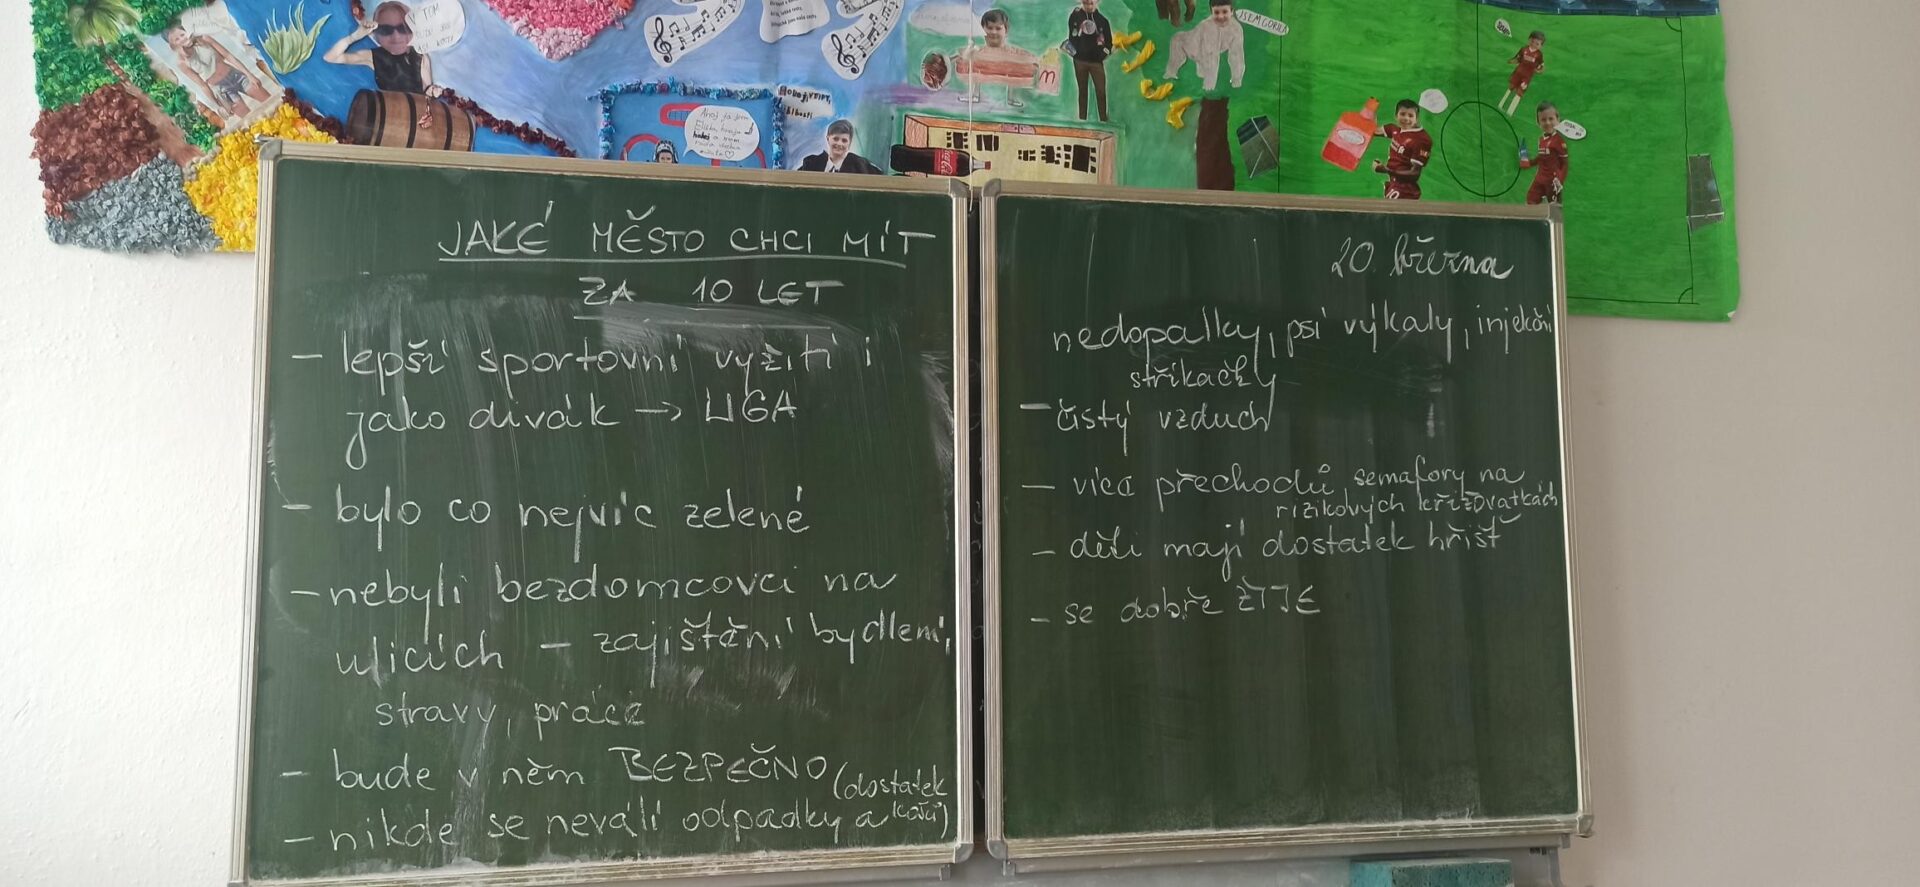 JAKÉ MĚSTO CHCI MÍT
ZA 10 LET
- lepší sportovní vyžití i
jako divák → LIGA
- bylo co nejvíc zelené
- nebyli bezdomcovci na
ulicích - zajištění bydlení,
stravy, práce
- bude v něm BEZPEČNO (dostatek
- nikde se neválí odpadky a košů)
20. března
nedopalky, psí výkaly, injekční
stříkačky
- čistý vzduch
- více přechodů, semafory na
rizikových křižovatkách
- děti mají dostatek hřišť
- se dobře ŽIJE
JSEM GORILA